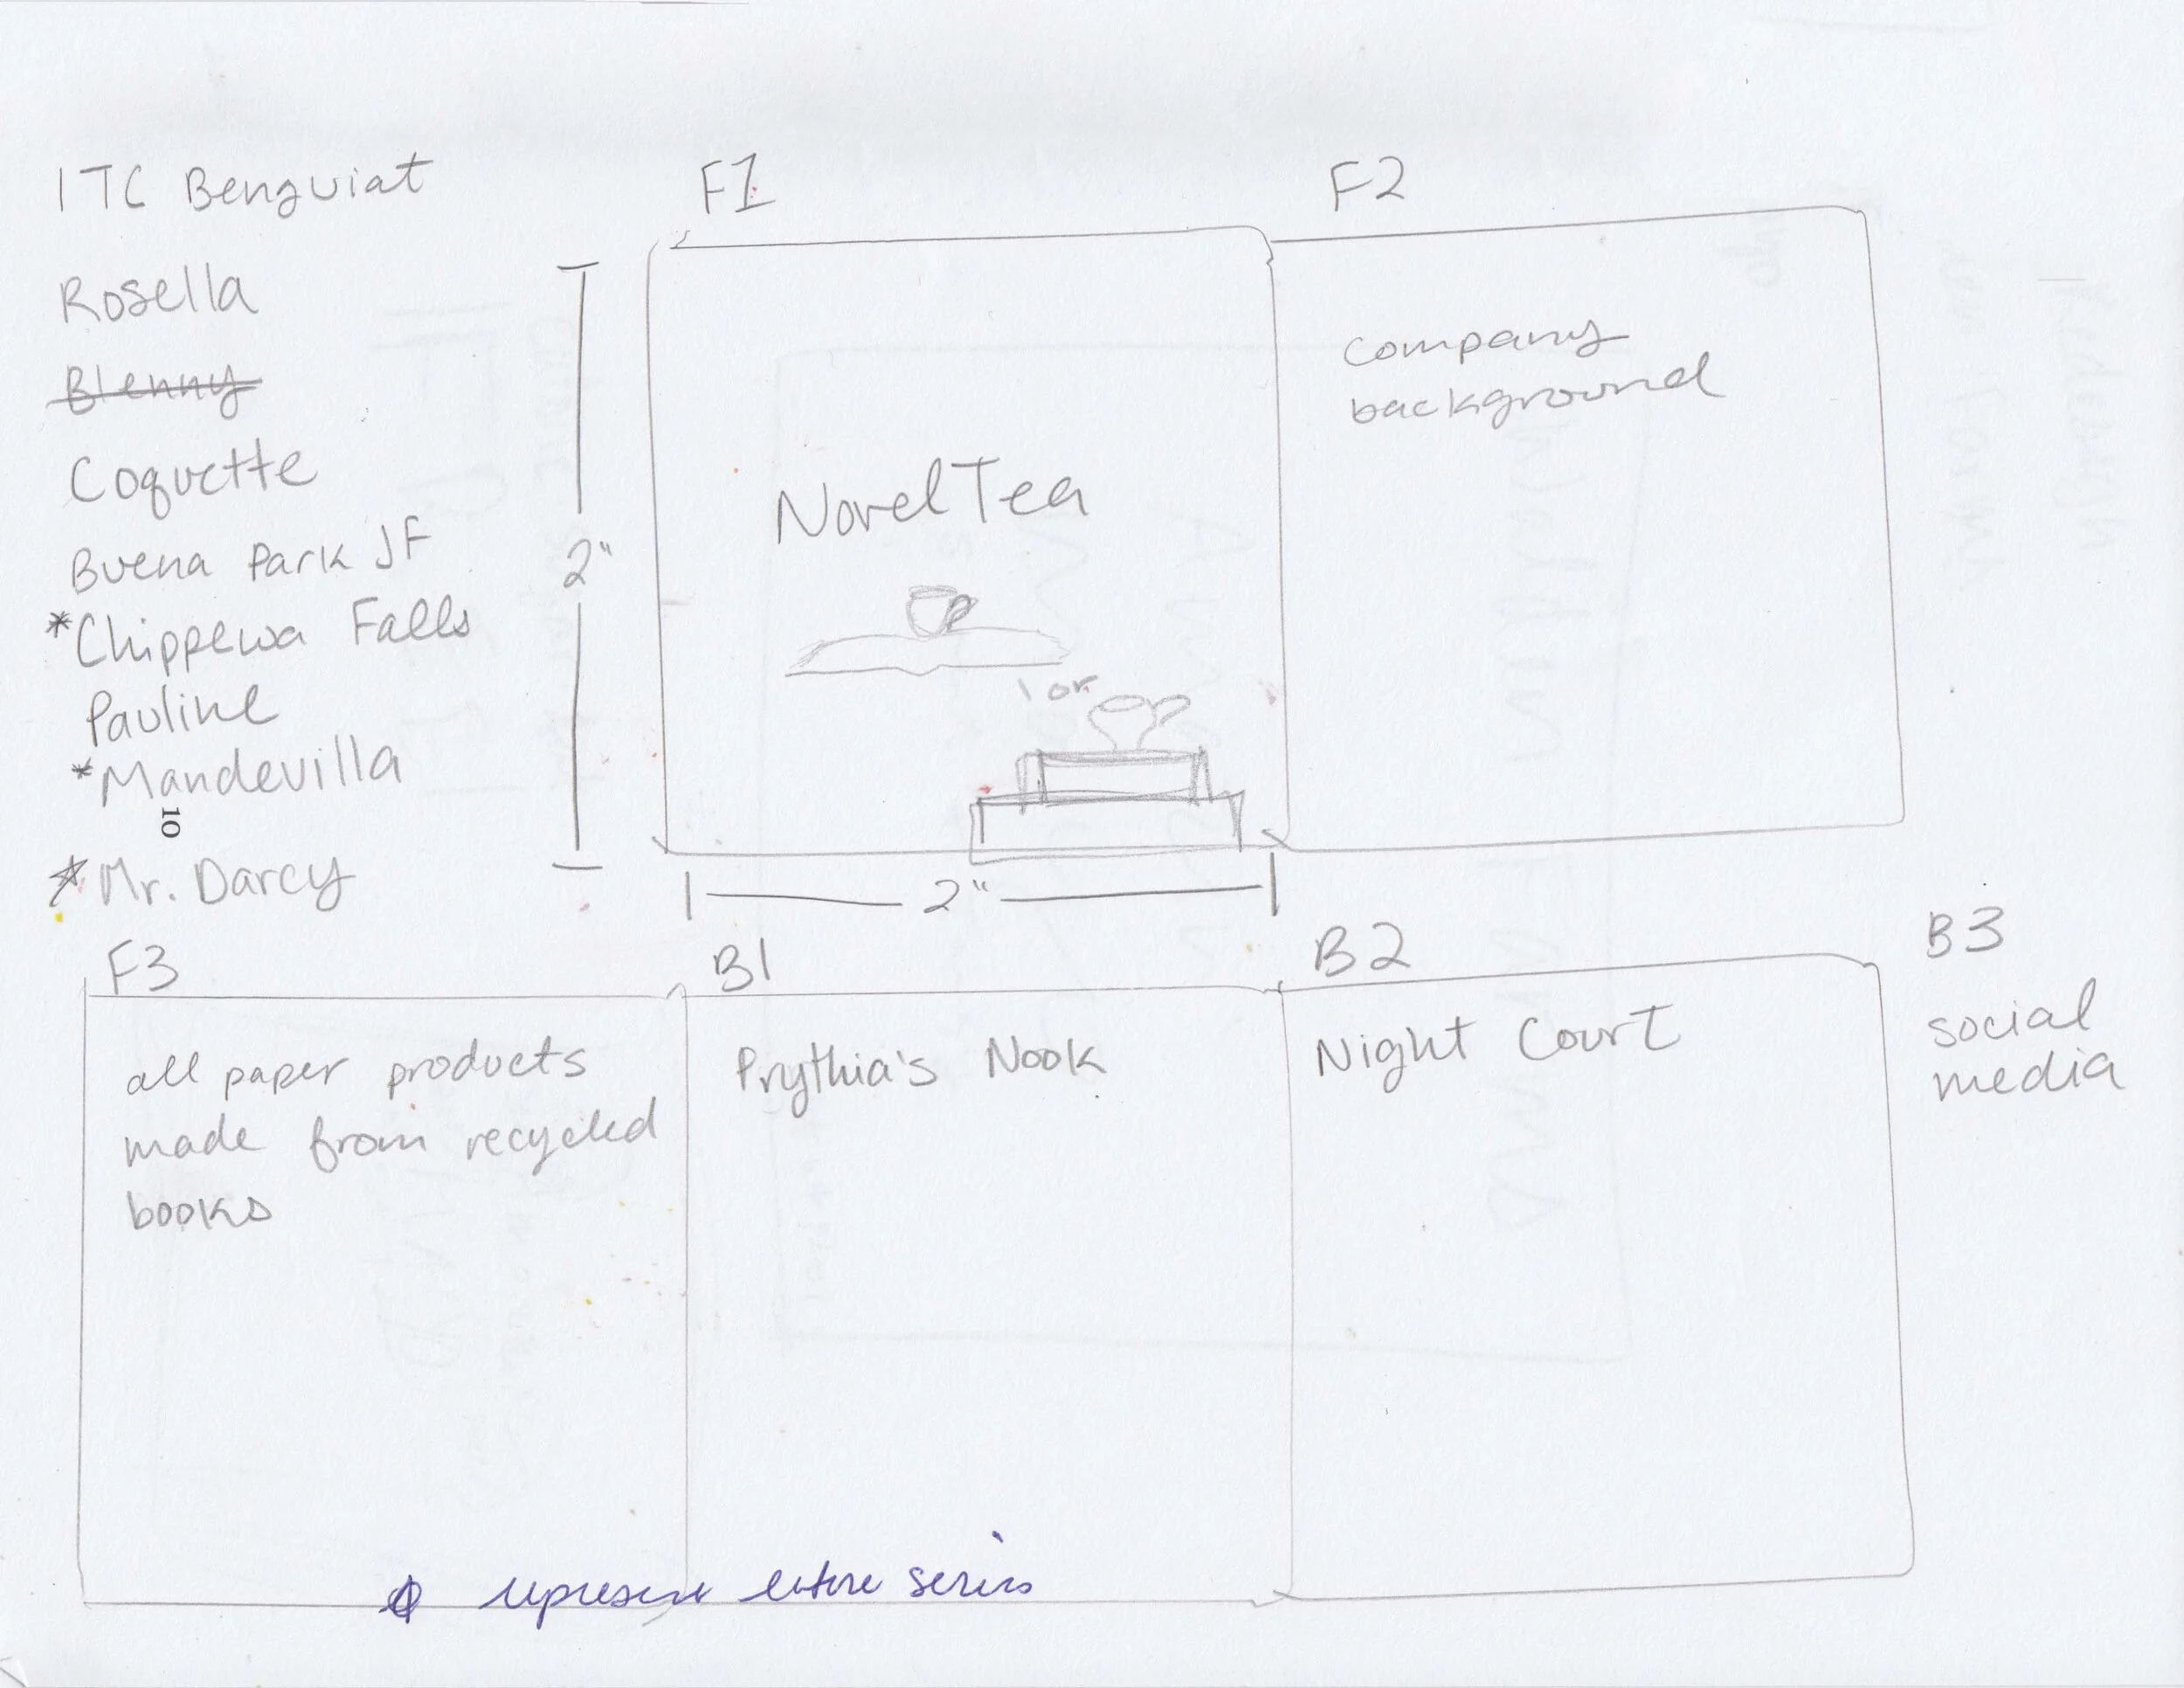 ITC Benguiat
Rosella
Blenny
Coquette
Buena Park JF
*Chippewa Falls
Pauline
*Mandevilla
10
*Mr. Darcy
F1
F2
2"
Novel Tea
or
2"
company
background
F3
all paper products
made from recycled
books
B1
Prythia's Nook
B2
Night Court
B3
social
media
represent entire series